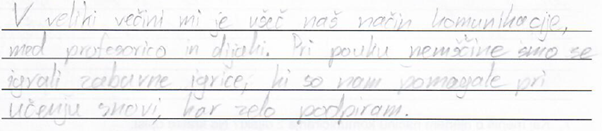 V veliki večini mi je všeč naš način komunikacije,
med profesorico in dijaki. Pri pouku nemščine smo se
igrali zabavne igrice, ki so nam pomagale pri
učenju snovi, kar zelo podpiram.